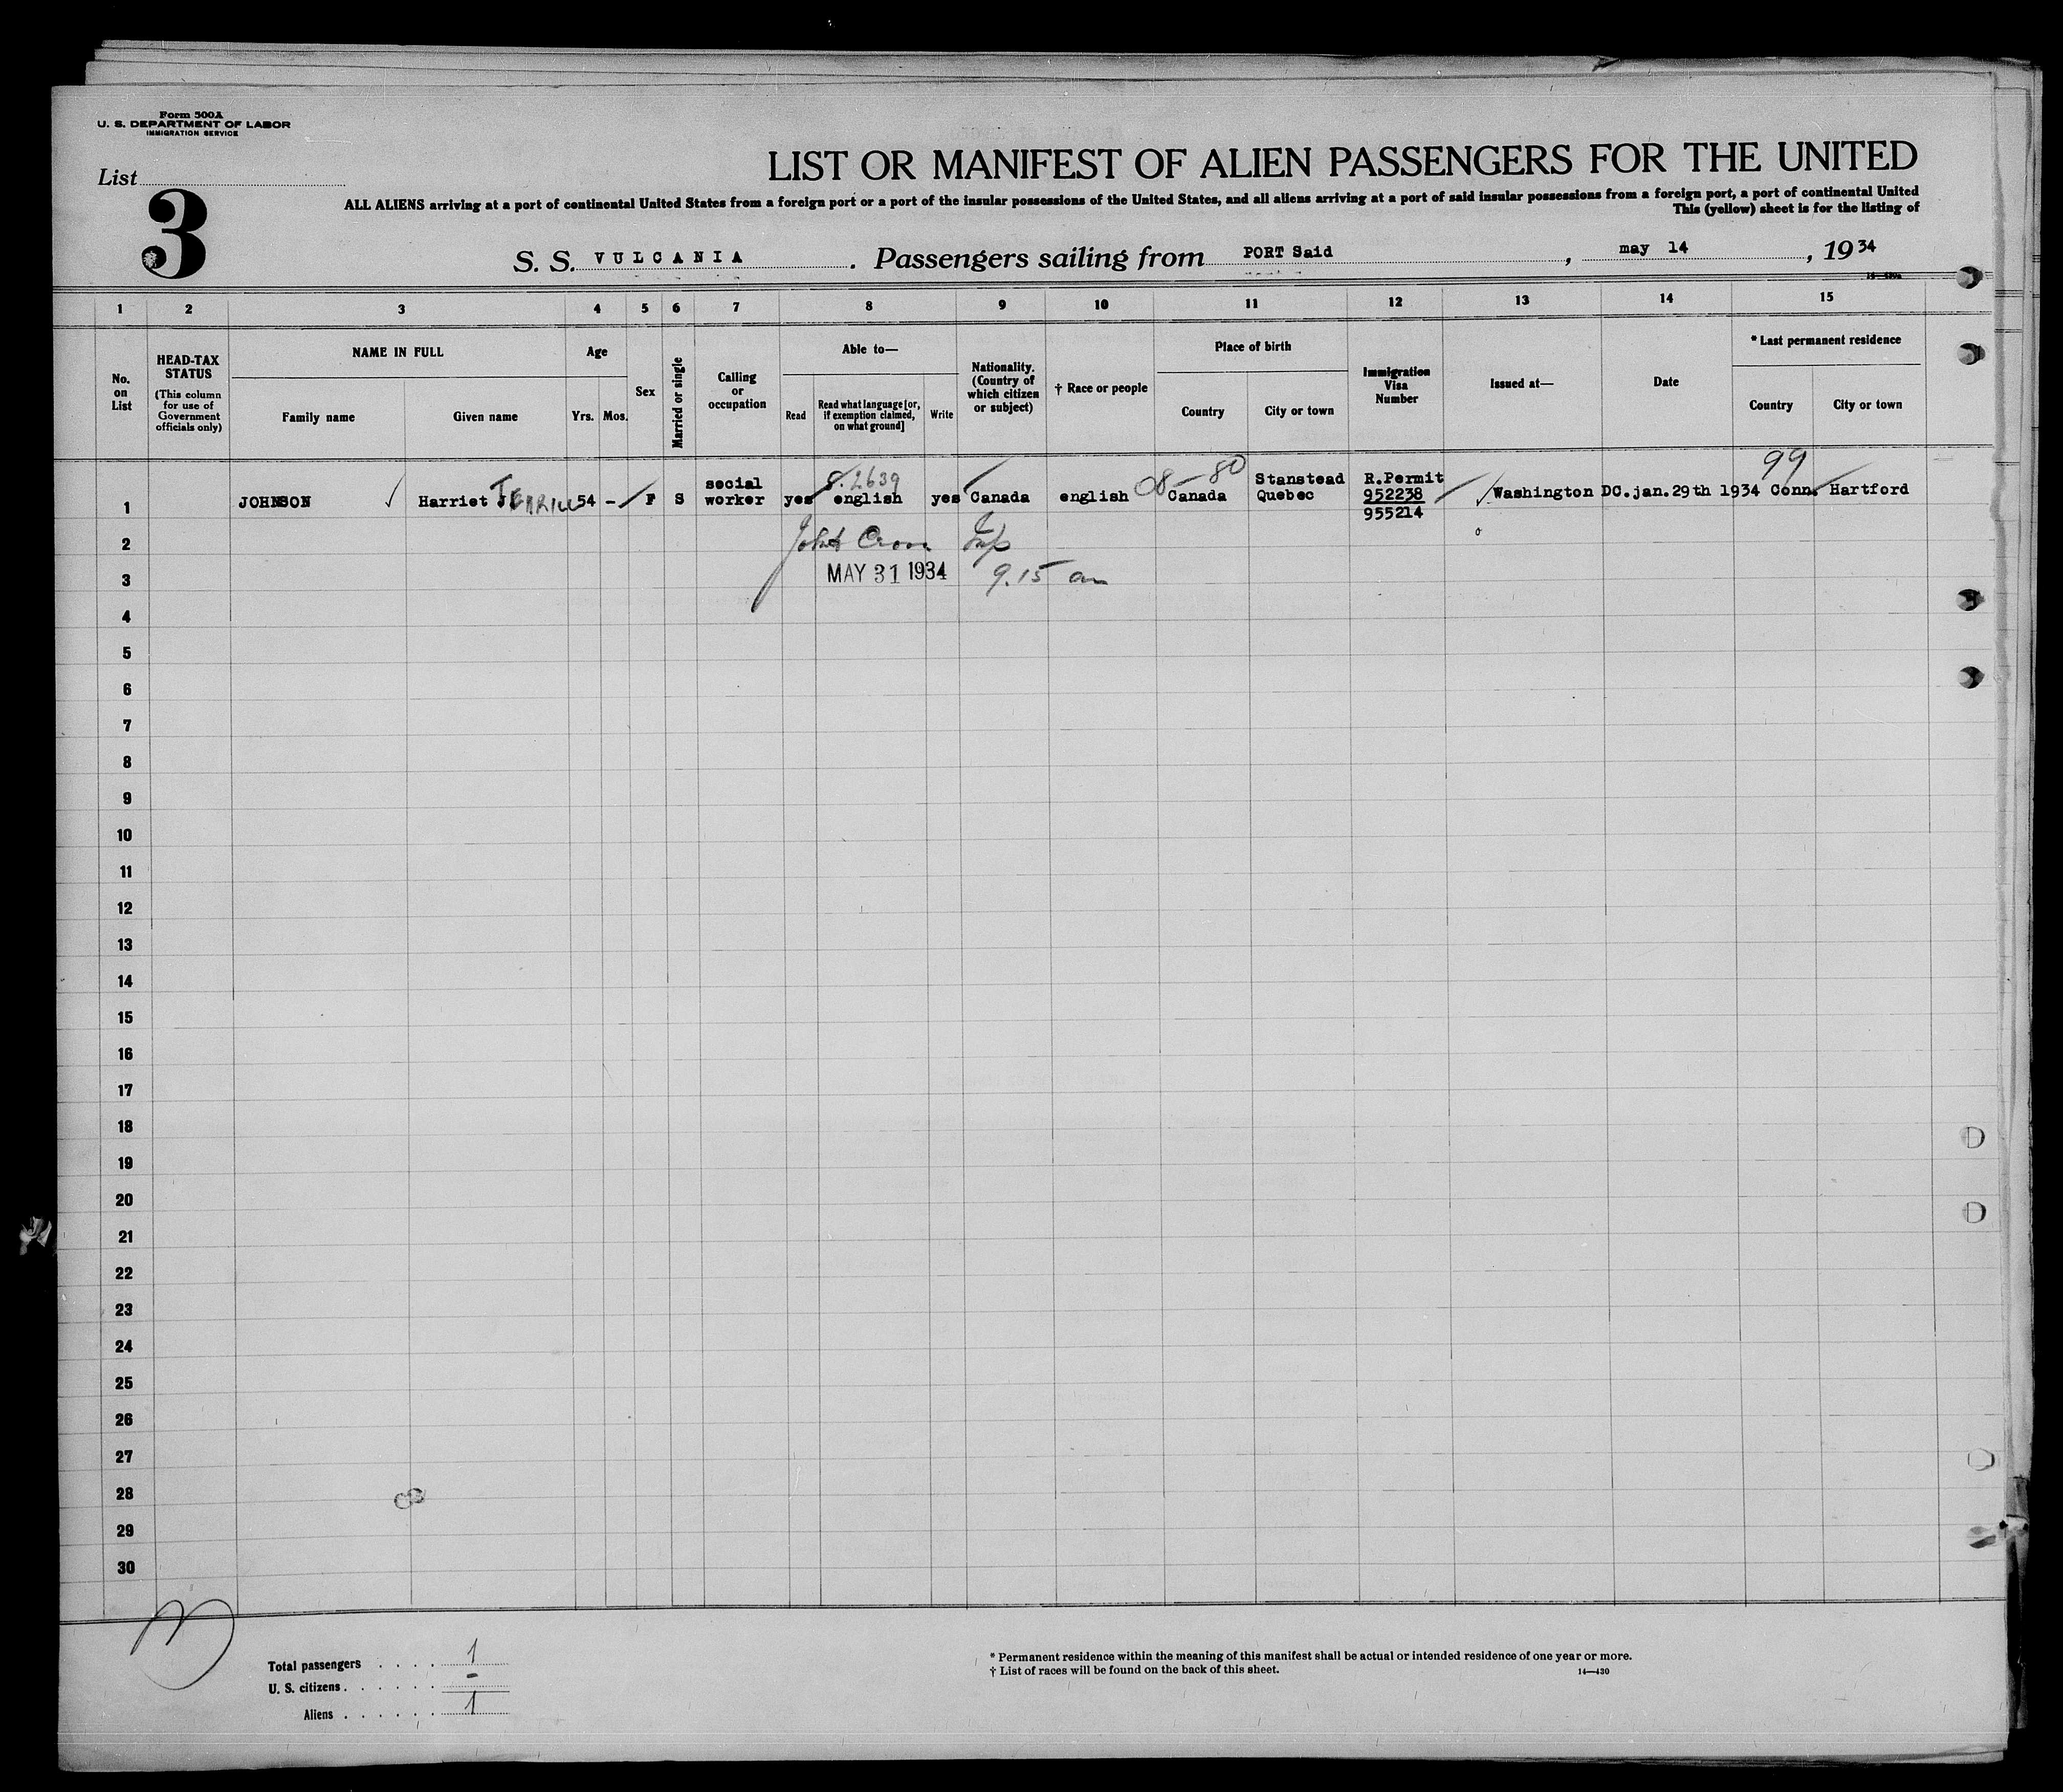 Form 500A
U. S. DEPARTMENT OF LABOR
IMMIGRATION SERVICE
List
3
LIST OR MANIFEST OF ALIEN PASSENGERS FOR THE UNITED
ALL ALIENS arriving at a port of continental United States from a foreign port or a port of the insular possessions of the United States, and all aliens arriving at a port of said insular possessions from a foreign port, a port of continental United
This (yellow) sheet is for the listing of
S. S. VULCANIA. Passengers sailing from PORT Said, may 14, 1934
1 2 3 4 5 6 7 8 9 10 11 12 13 14 15
No. on List
HEAD-TAX STATUS
(This column for use of Government officials only)
NAME IN FULL
Family name
Given name
Age
Yrs. Mos.
Sex
Married or single
Calling or occupation
Able to—
Read
Read what language [or, if exemption claimed, on what ground]
Write
Nationality. (Country of which citizen or subject)
† Race or people
Place of birth
Country
City or town
Immigration Visa Number
Issued at—
Date
* Last permanent residence
Country
City or town
1 JOHNSON Harriet 54 - F S social worker yes english yes Canada english Canada Stanstead Quebec R.Permit 952238 955214 Washington DC. jan. 29th 1934 Conn. Hartford
99
2
MAY 31 1934 9.15 am
3
4
5
6
7
8
9
10
11
12
13
14
15
16
17
18
19
20
21
22
23
24
25
26
27
28
29
30
Total passengers . . . . 1
U. S. citizens . . . . . . -
Aliens . . . . . . 1
* Permanent residence within the meaning of this manifest shall be actual or intended residence of one year or more.
† List of races will be found on the back of this sheet.
14—430